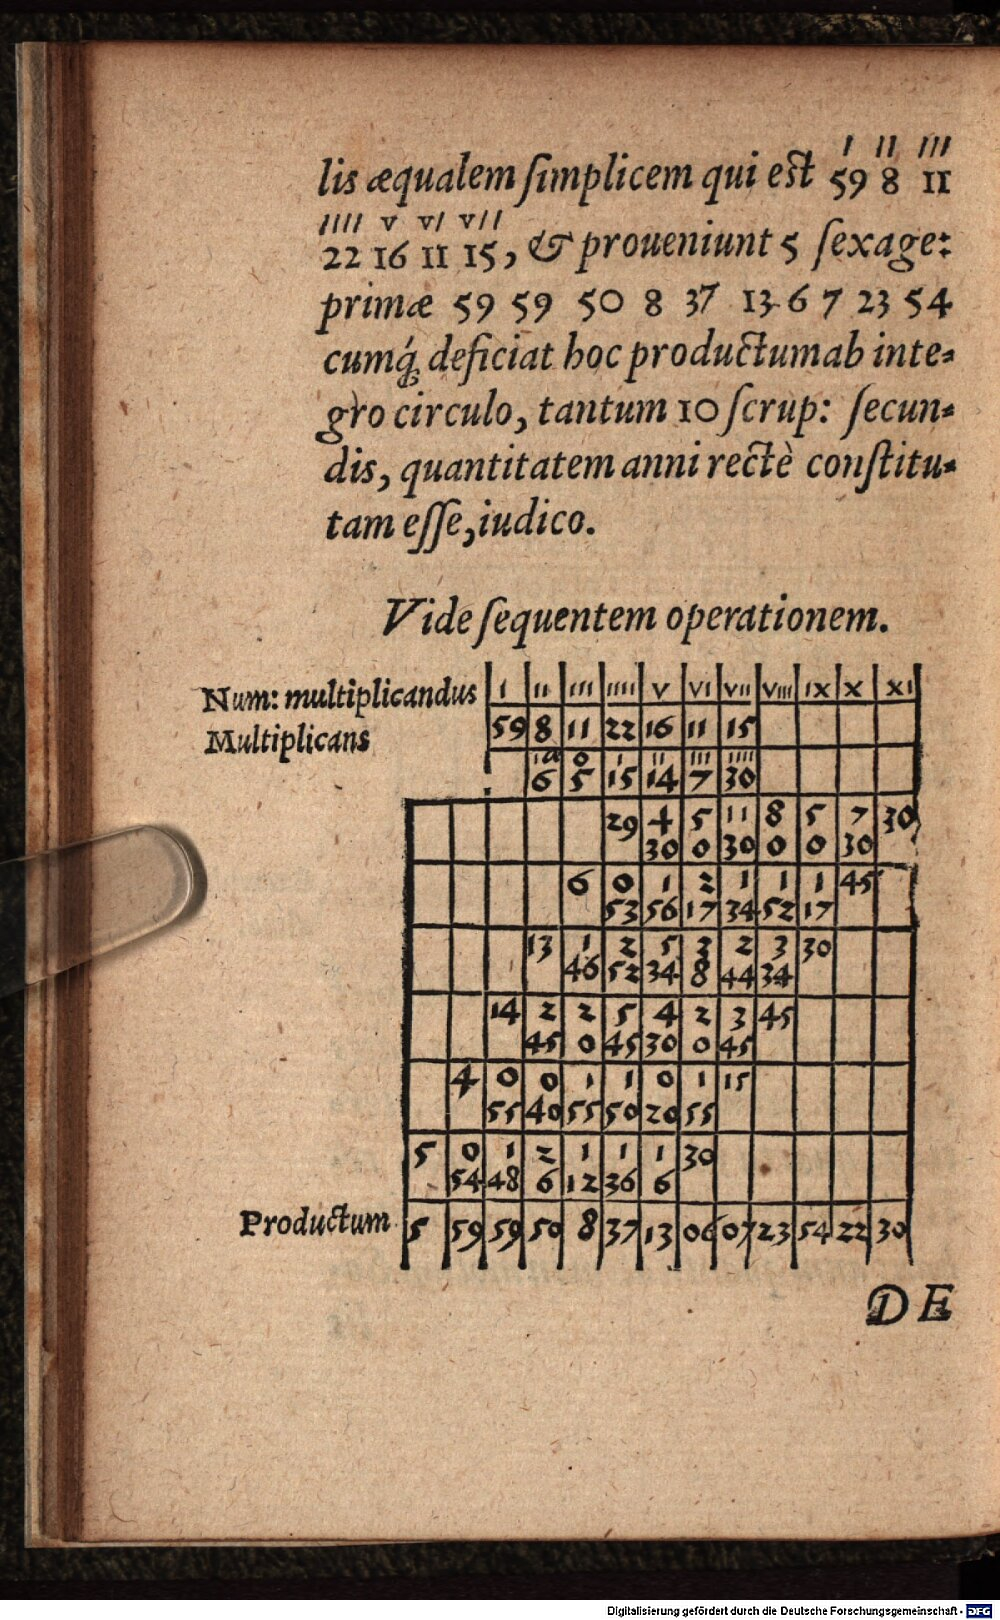 I II III
lis æqualem ſimplicem qui eſt 59 8 11
IIII V VI VII
22 16 11 15, & proueniunt 5 ſexage:
primæ 59 59 50 8 37 13 6 7 23 54
cumq́; deficiat hoc productum ab inte=
gro circulo, tantum 10 ſcrup: ſecun=
dis, quantitatem anni rectè conſtitu=
tam eſſe, iudico.
Vide ſequentem operationem.
Num: multiplicandus I II III IIII V VI VII VIII IX X XI
Multiplicans 59 8 11 22 16 11 15
1a 0 I II III IIII
6 5 15 14 7 30
29 4 5 11 8 5 7 30
30 0 30 0 0 30
6 0 1 2 1 1 1 45
53 56 17 34 52 17
13 1 2 5 2 2 3 30
46 52 34 8 44 34
14 2 2 5 4 2 3 45
45 0 45 30 0 45
4 0 0 1 1 0 1 15
55 40 55 50 20 55
5 0 1 2 1 1 1 30
54 48 6 12 36 6
Productum 5 59 59 50 8 37 13 06 07 23 54 22 30
DE
Digitalisierung gefördert durch die Deutsche Forschungsgemeinschaft - DFG